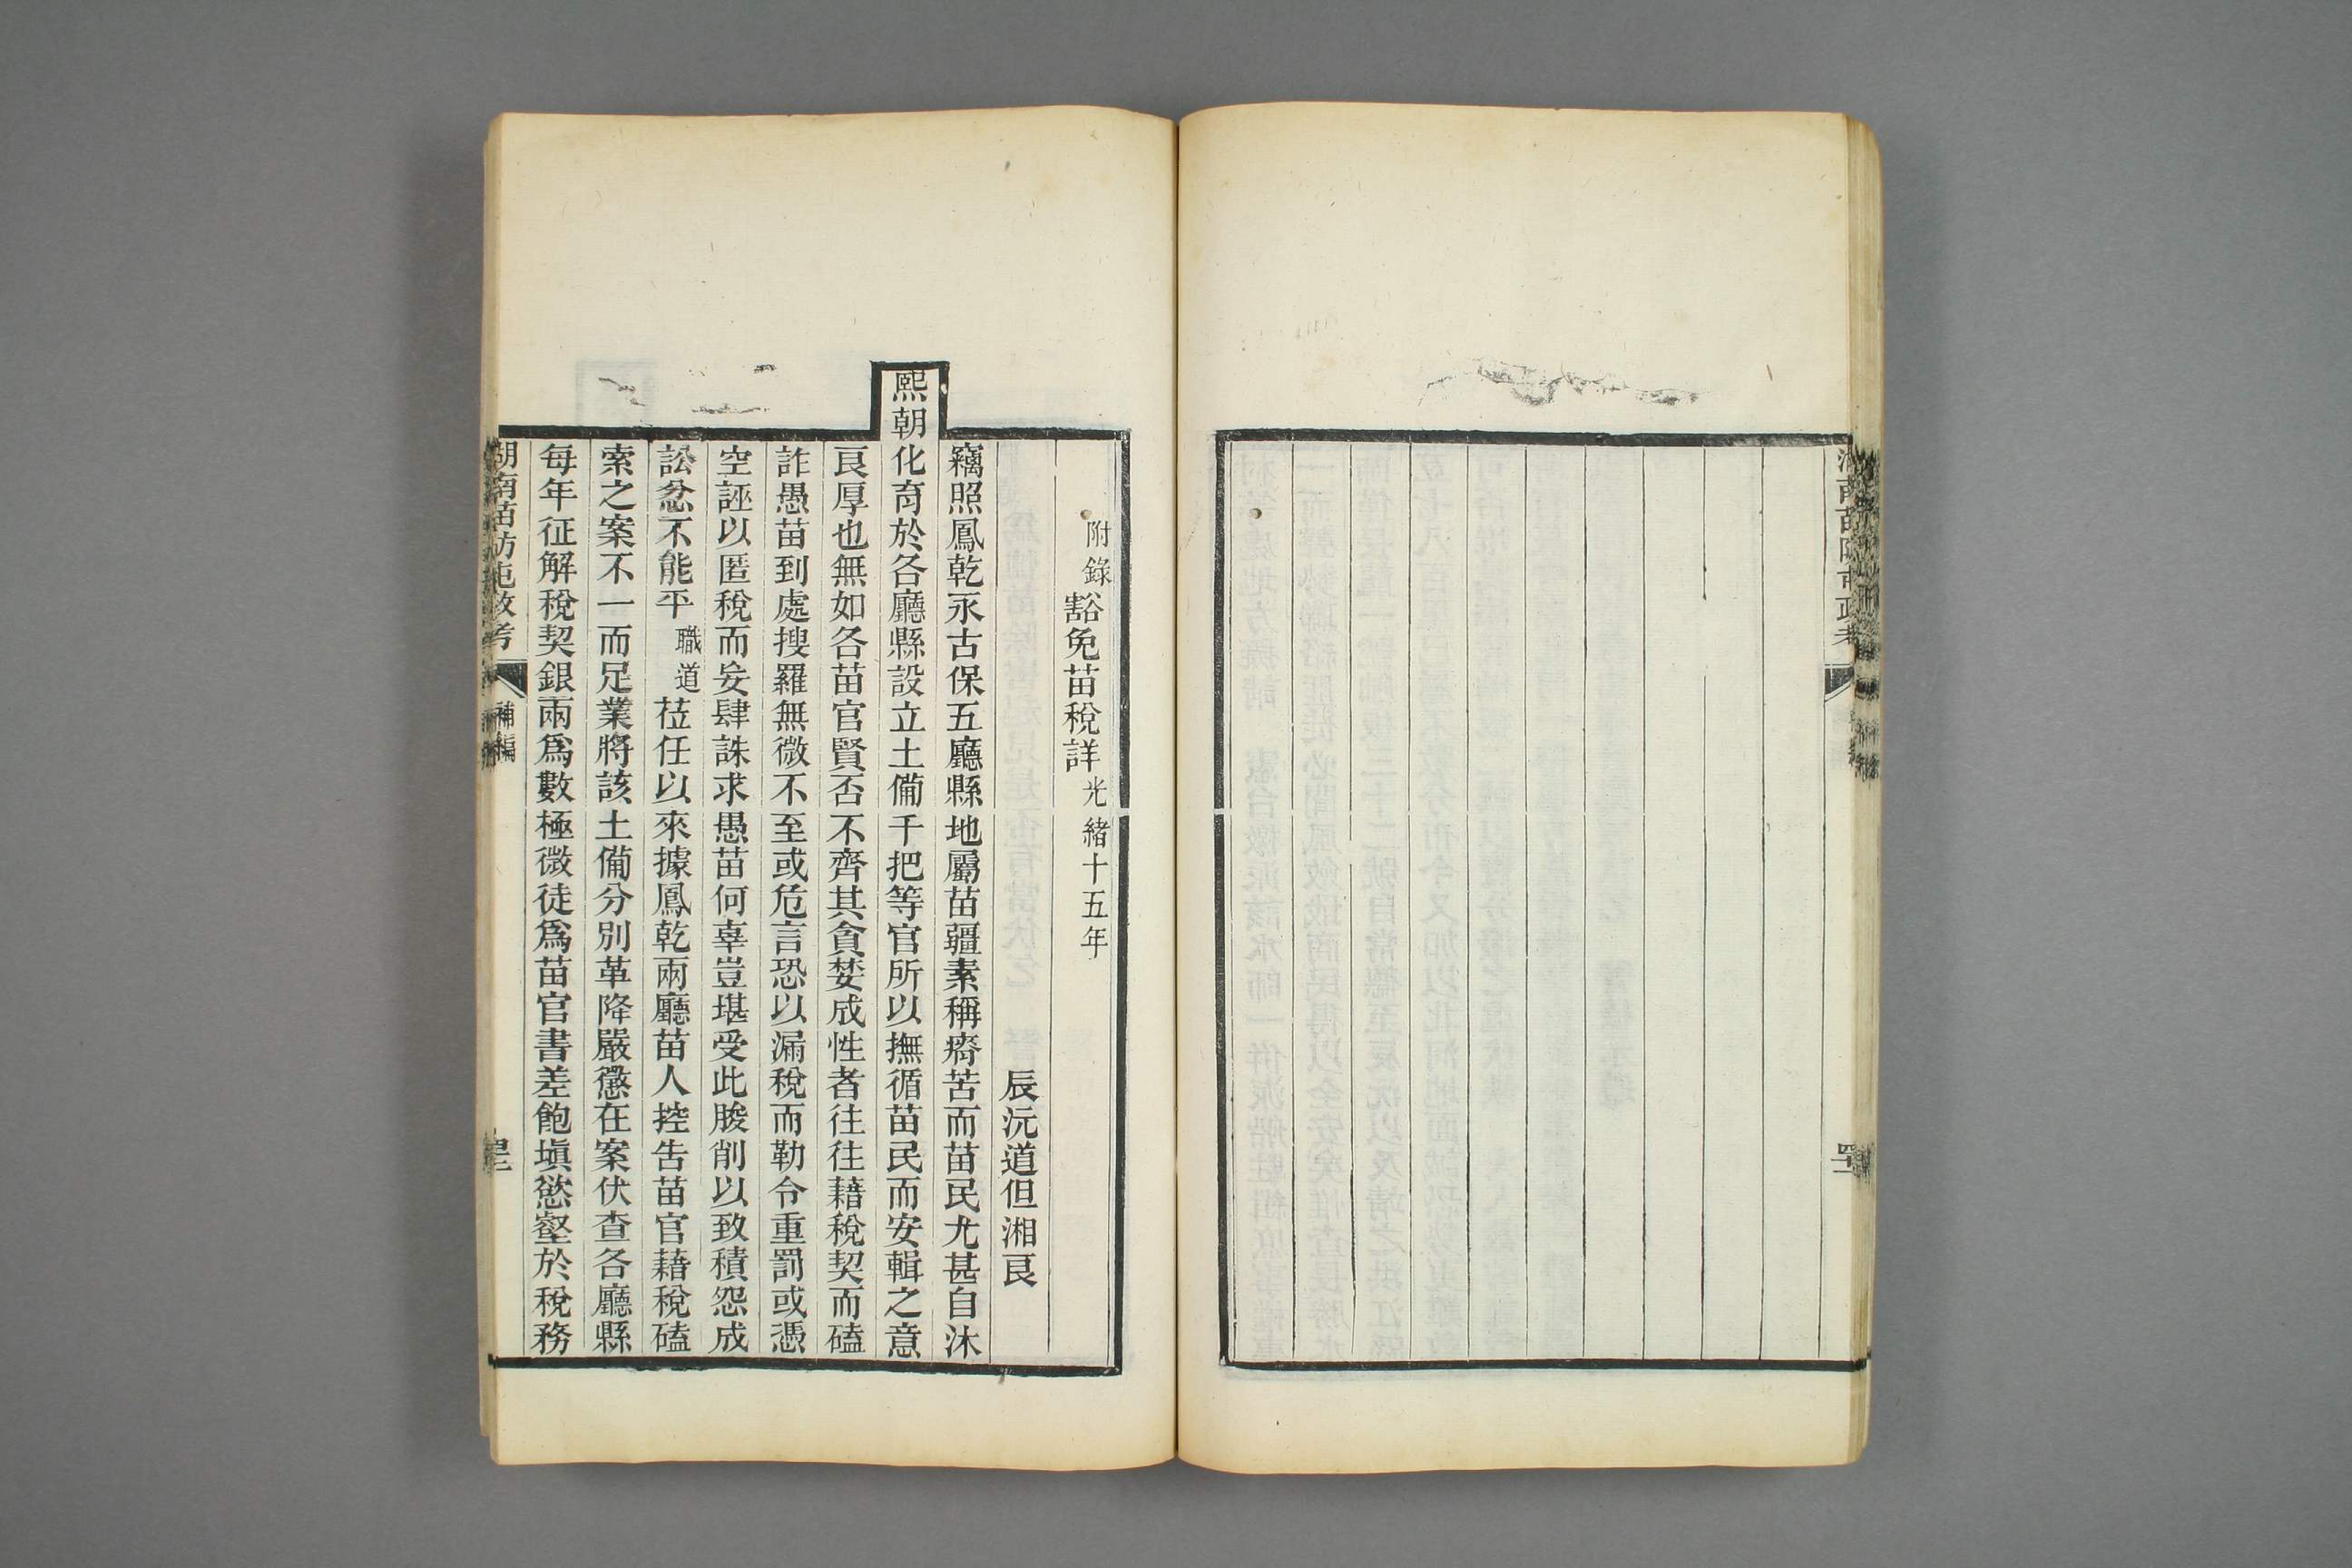 附錄豁免苗稅詳光緒十五年
辰沅道但湘良
竊照鳳乾永古保五廳縣地屬苗疆素稱瘠苦而苗民尤甚自沐
熙朝化育於各廳縣設立土備千把等官所以撫循苗民而安輯之意
良厚也無如各苗官賢否不齊其貪婪成性者往往藉稅契而磕
詐愚苗到處搜羅無微不至或危言恐以漏稅而勒令重罰或憑
空誣以匿稅而妄肆誅求愚苗何辜豈堪受此朘削以致積怨成
訟忿不能平職道莅任以來據鳳乾兩廳苗人控告苗官藉稅磕
索之案不一而足業將該土備分別革降嚴懲在案伏查各廳縣
每年征解稅契銀兩爲數極微徒爲苗官書差飽塡慾壑於稅務
湖南苗防屯政考 補編